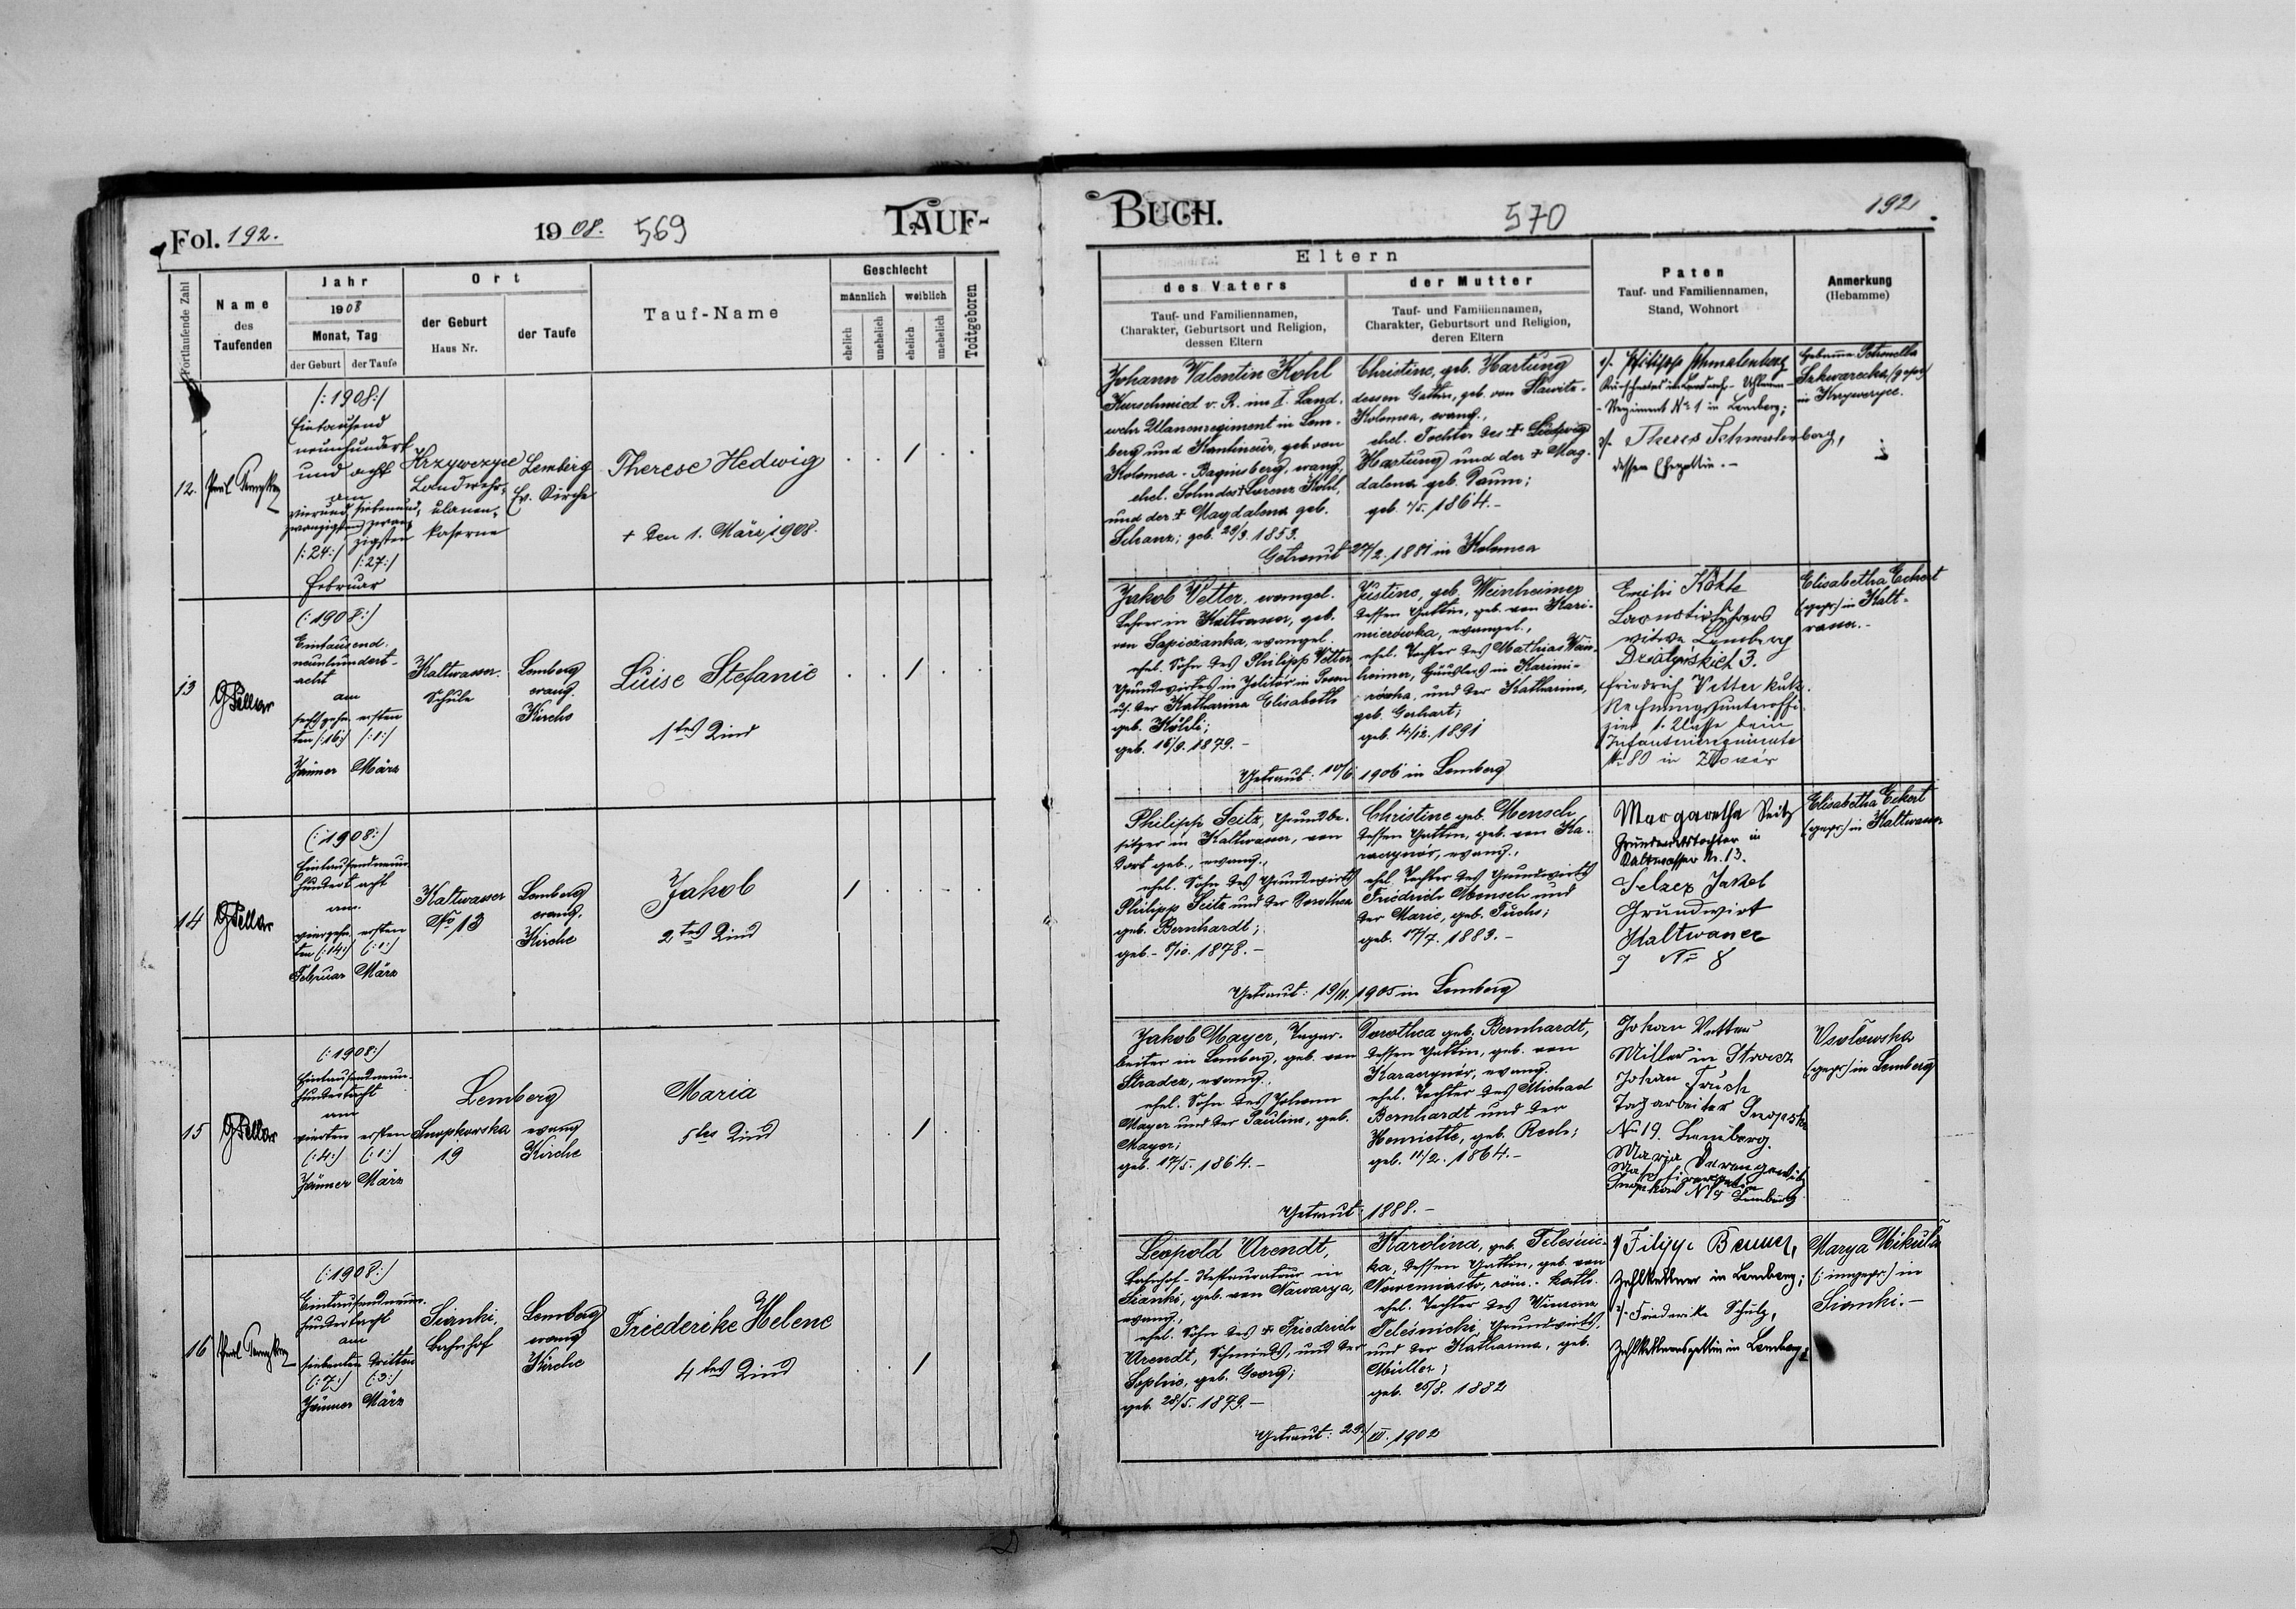 Fol. 192.
1908.
569
TAUF-
Fortlaufende Zahl
Name
des
Taufenden
Jahr
1908
Monat, Tag
der Geburt
der Taufe
Ort
der Geburt
Haus Nr.
der Taufe
Tauf-Name
Geschlecht
männlich
weiblich
ehelich
unehelich
ehelich
unehelich
Todtgeboren
12.
(:1908:)
Eintausend
neunhundert
und acht
am
vierund-
zwanzigsten
(:24:)
siebenund-
zwanzigsten
(:27:)
Februar
Krzywczyce
Landwehr-
ulanen-
kaserne
Lemberg
Ev. Kirche
Therese Hedwig
+ den 1. März 1908.
. . / . .
13
(:1908:)
Eintausend
neunhundert-
acht
am
sechzehn-
ten (:16:)
Jänner
ersten
(:1:)
März
Kaltwasser
Schule
Lemberg
evang.
Kirche
Luise Stefanie
1tes Kind
. . / . .
14
(:1908:)
Eintausendneun-
hundert acht
am
vierzehn-
ten (:14:)
Februar
ersten
(:1:)
März
Kaltwasser
No 13
Lemberg
evang.
Kirche
Jakob
2tes Kind
/ . . . .
15
(:1908:)
Eintausendneun-
hundertacht
am
vierten
(:4:)
Jänner
ersten
(:1:)
März
Lemberg
Snopkowska
19
evang
Kirche
Maria
5tes Kind
. . / . .
16
(:1908:)
Eintausendneun-
hundertacht
am
siebenten
(:7:)
Jänner
dritten
(:3:)
März
Sianki,
Bahnhof
Lemberg
evang
Kirche
Friederike Helene
4tes Kind
. . / . .
BUCH.
570
192
Eltern
des Vaters
Tauf- und Familiennamen,
Charakter, Geburtsort und Religion,
dessen Eltern
der Mutter
Tauf- und Familiennamen,
Charakter, Geburtsort und Religion,
deren Eltern
Paten
Tauf- und Familiennamen,
Stand, Wohnort
Anmerkung
(Hebamme)
Johann Valentin Kohl
Kurschmied v. R. im I. Land-
wehr Ulanenregiment in Lem-
berg und Kantineur, geb. von
Kolomea-Baginsberg, evang.,
ehel. Sohn des + Lorenz Kohl,
und der + Magdalena geb.
Schanz; geb. 29/3. 1853.
Christine, geb. Hartung
dessen Gattin, geb. von Slawitz-
Kolomea, evang.,
ehel. Tochter des + Ludwig
Hartung und der + Mag-
dalena geb. Daum;
geb. 4/5. 1864.-
Getraut 27/2. 1881 in Kolomea
1/. Philipp Schmalenberg
Regiment No 1 in Lemberg;
2/. Theres Schmalenberg,
dessen Ehegattin.-
Hebamme Petronella
(gepr)
in Krzywczyce.
Jakob Vetter, evangel.
Lehrer in Kaltwasser, geb.
von Sapiezanka, evangel.
ehel. Sohn des Philipp Vetter
Grundwirtes in
u/. der Katharina Elisabeth
geb.
geb. 16/9. 1879.-
Justine, geb. Weinheimer
dessen Gattin, geb. von Kazi-
mierowka, evangel.,
ehel. Tochter des Mathias Wein-
heimer, in Kazimi-
rówka, und der Katharina,
geb. Gerhart;
geb. 4/12. 1891
Getraut: 10/6 1906 in Lemberg
witwe Lemberg
3.
Friedrich Vetter
Rechnungsunteroffi-
zier 1. Klasse beim
Infanterieregimente
No 80 in
Elisabetha Eckert
(gepr) in Kalt-
wasser.-
Philipp Seitz, Grundbe-
sitzer in Kaltwasser, von
dort geb., evang.,
ehel. Sohn des Grundwirts
Philipp Seitz und der Dorothea
geb. Bernhardt;
geb.- 1878.-
Christine geb. Mensch
dessen Gattin, geb. von Ka-
raczynów, evang.,
ehel. Tochter des Grundwirts
Friedrich Mensch und
der Marie, geb. Fuchs;
geb. 17/7. 1883.-
Getraut: 19/11. 1905 in Lemberg
Margaretha Seitz
Grundwirtstochter in
Kaltwasser Nr. 13.
Selzer Jakob
Grundwirt
Kaltwasser
No 8
Elisabetha Eckert
(gepr) in Kaltwasser
Jakob Mayer, Tagar-
beiter in Lemberg, geb. von
Stradcz, evang.,
ehel. Sohn des Johann
Mayer und der Pauline, geb.
Mayer;
geb. 17/5. 1864.-
Dorothea geb. Bernhardt,
dessen Gattin, geb. von
Karaczynów, evang.
ehel. Tochter des Michael
Bernhardt und der
Henriette, geb. Rech;
geb. 11/2. 1864.-
Getraut: 1888.-
Johan Vetter
Miller in
Johan
Tagarbeiter
No 19. Lemberg.
Marja
Lemberg
(gepr) in Lemberg
Leopold Arendt,
Bahnhof-Restaurateur in
Sianki, geb. von Nawarya,
evang.,
ehel. Sohn des + Friedrich
Arendt, Schmieds, und der
Sophie, geb. Georg;
geb. 28/5. 1879.-
Karolina, geb. Telesnic-
ka, dessen Gattin, geb. von
Nowemiasto, röm.-kath.
ehel. Tochter des Winzenz
Teleśnicki, Grundwirts,
und der Katharina, geb.
Müller;
geb. 25/8. 1882
Getraut: 29/XII. 1902
1/ Filipp
Zahlkellner in Lemberg;
2/. Friederike Schulz,
Zahlkellnersgattin in Lemberg
Marya Mikula
(:ungepr:) in
Sianki.-